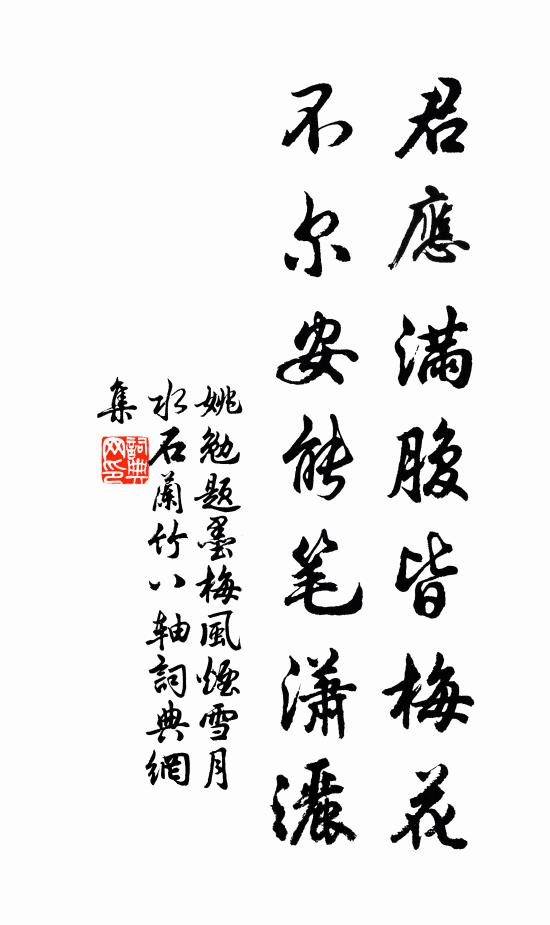 君應滿腹皆梅花
不尔安能笔瀟灑
姚勉题墨梅風煙雪月
水石蘭竹八轴詞典網
集
詞典网印